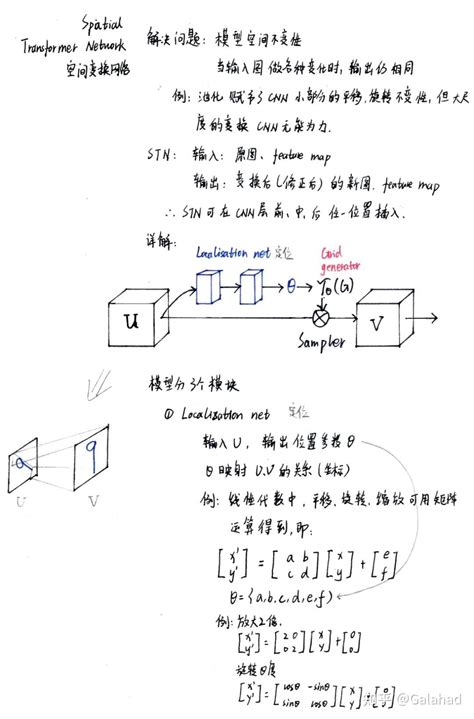 Spatial
Transformer Network
空间变换网络
解决问题：模型空间不变性
当输入图做各种变化时，输出仍相同
例：池化赋予了CNN小部分的平移、旋转不变性，但大尺
度的变换CNN无能为力.
STN：输入：原图、feature map
输出：变换后(修正后)的新图、feature map
∴ STN可在CNN层前、中、后任一位置插入.
详解：
Localisation net 定位
Grid
generator
θ
Tθ(G)
U
V
Sampler
模型分3个模块
① Localization net 定位
输入U，输出位置参数θ
θ映射U.V的关系(坐标)
例：线性代数中，平移、旋转、缩放可用矩阵
运算得到，即：
[x' y'] = [a b c d] [x y] + [e f]
θ={a,b,c,d,e,f}
例：放大2倍.
[x' y'] = [2 0 0 2] [x y] + [0 0]
旋转θ度
[x' y'] = [cosθ -sinθ sinθ cosθ] [x y] + [0 0]
9
9
U
V
知乎 @Galahad